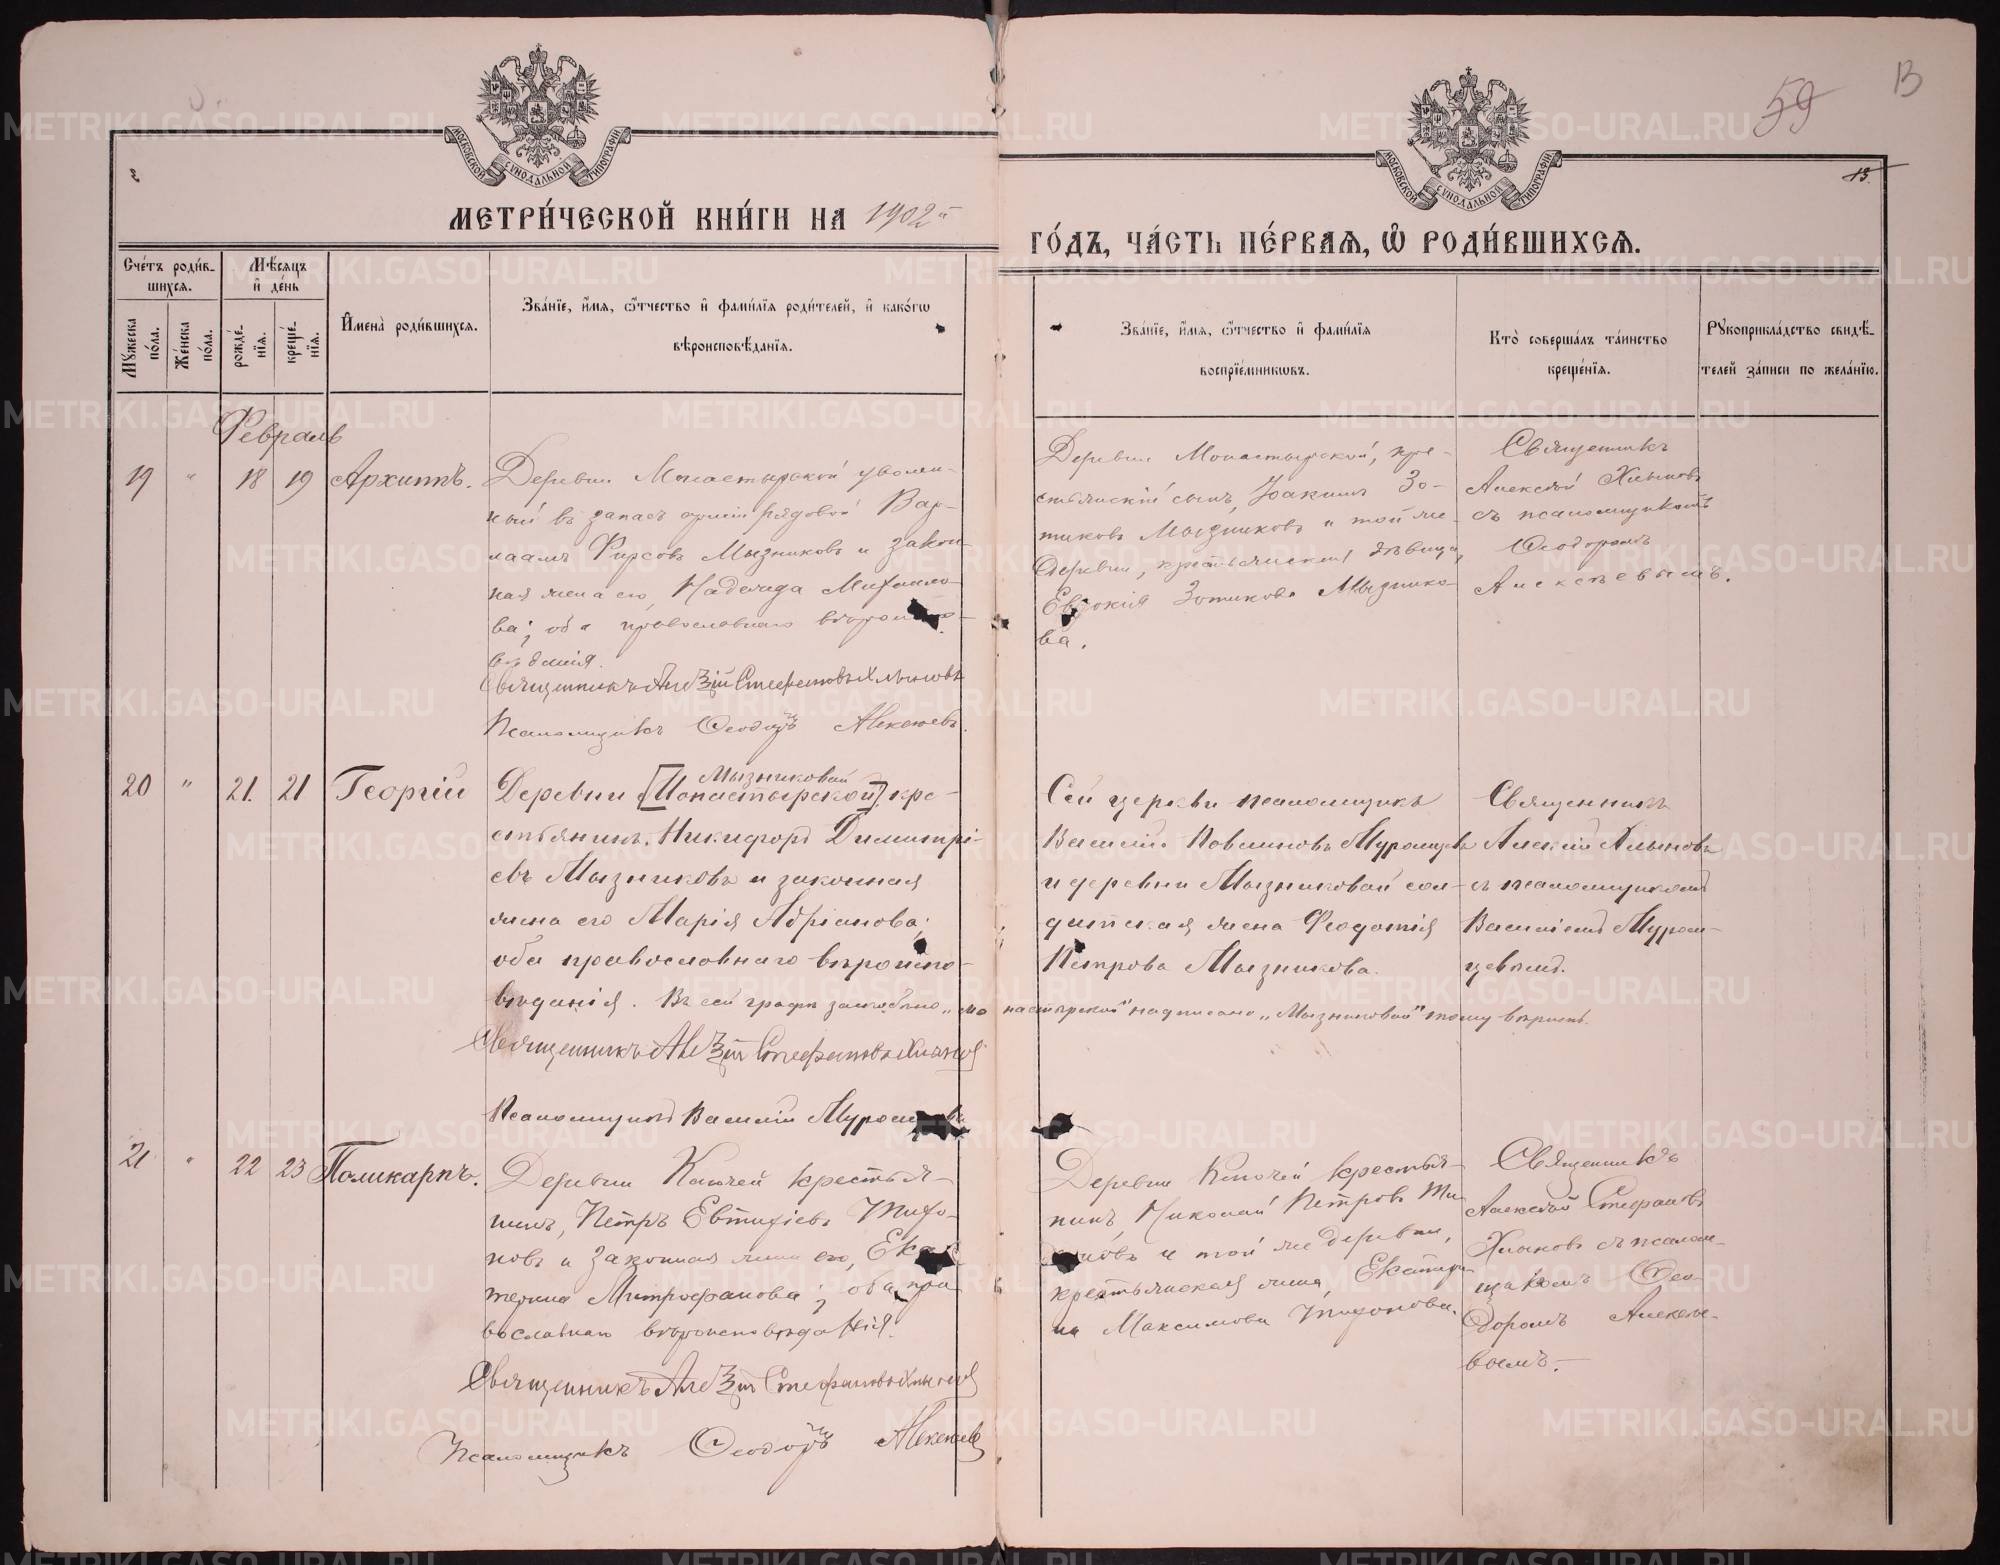 59
В
13.
МОСКОВСКОЙ СѴНОДАЛЬНОЙ ТИПОГРАФІИ
МОСКОВСКОЙ СѴНОДАЛЬНОЙ ТИПОГРАФІИ
МЕТРИ́ЧЕСКОЙ КНИ́ГИ НА 1902й
ГО́ДЪ, ЧА́СТЬ ПЕ́РВАЯ, Ѡ҆ РОДИ́ВШИХСЯ.
Сче́тъ роди́в-
шихся.
Мѣ́сяцъ
и҆ де́нь
Мꙋ́жеска
по́ла.
Же́нска
по́ла.
рожде́-
нїя.
креще́-
нїя.
И҆мена̀ роди́вшихся.
Зва́нїе, и҆́мя, ѻ҆́тчество и҆ фамилїя роди́телей, и҆ како́гѡ
вѣроисповѣ́данїя.
Зва́нїе, и҆́мя, ѻ҆́тчество и҆ фами́лїя
воспрїе́мникѡвъ.
Кто̀ соверша́лъ та́инство
креще́нїя.
Рꙋкоприкла́дство свидѣ́-
телей за́писи по жела́нїю.
Февраль
19 " 18 19 Архиппъ.
Деревни Монастырской уволен-
ный въ запасъ арміи рядовой Вар-
лаамъ Фирсовъ Мызниковъ и закон-
ная жена его, Надежда Михаило-
ва; оба православнаго вѣроиспо-
вѣданія.
Священникъ Алеѯій Стефановъ Хлыновъ
Псаломщикъ Ѳеодоръ Алексѣевъ.
Деревни Монастырской, кре-
стьянскій сынъ, Іоакимъ Зо-
тиковъ Мызниковъ и той же
деревни, крестьянская дѣвица,
Евдокія Зотикова Мызнико-
ва.
Священникъ
Алексѣй Хлыновъ
съ псаломщикомъ
Ѳеодоромъ
Алексѣевымъ.
20 " 21. 21 Георгій
Мызниковой
Деревни [Монастырской] кре-
стьянинъ Никифоръ Димитрі-
евъ Мызниковъ и законная
жена его Марія Адріанова;
оба православнаго вѣроиспо-
вѣданія. Въ сей графѣ заскоблено „монастырской" надписано „Мызниковой" тому вѣрить.
Священникъ Алеѯій Стефановъ Хлыновъ
Псаломщикъ Василій Муромцевъ
Сей церкви псаломщикъ
Василій Муромцевъ
и деревни Мызниковой сол-
датская жена Феодотія
Петрова Мызникова.
Священникъ
Алексій Хлыновъ
съ псаломщикомъ
Василіемъ Муром-
цевымъ.
21 " 22 23 Поликарпъ.
Деревни Ключей крестья-
нинъ, Петръ Евтихіевъ Тихо-
новъ и законная жена его, Ека-
терина Митрофанова; оба пра-
вославнаго вѣроисповѣданія.
Священникъ Алеѯій Стефановъ Хлыновъ
Псаломщикъ Ѳеодоръ Алексѣевъ
Деревни Ключей крестья-
нинъ, Николай Петровъ Ти-
хоновъ и той же деревни,
крестьянская жена, Екатери-
на Максимова Тихонова.
Священникъ
Алексѣй Стефановъ
Хлыновъ съ псалом-
щикомъ Ѳео-
доромъ Алексѣе-
вымъ.
METRIKI.GASO-URAL.RU